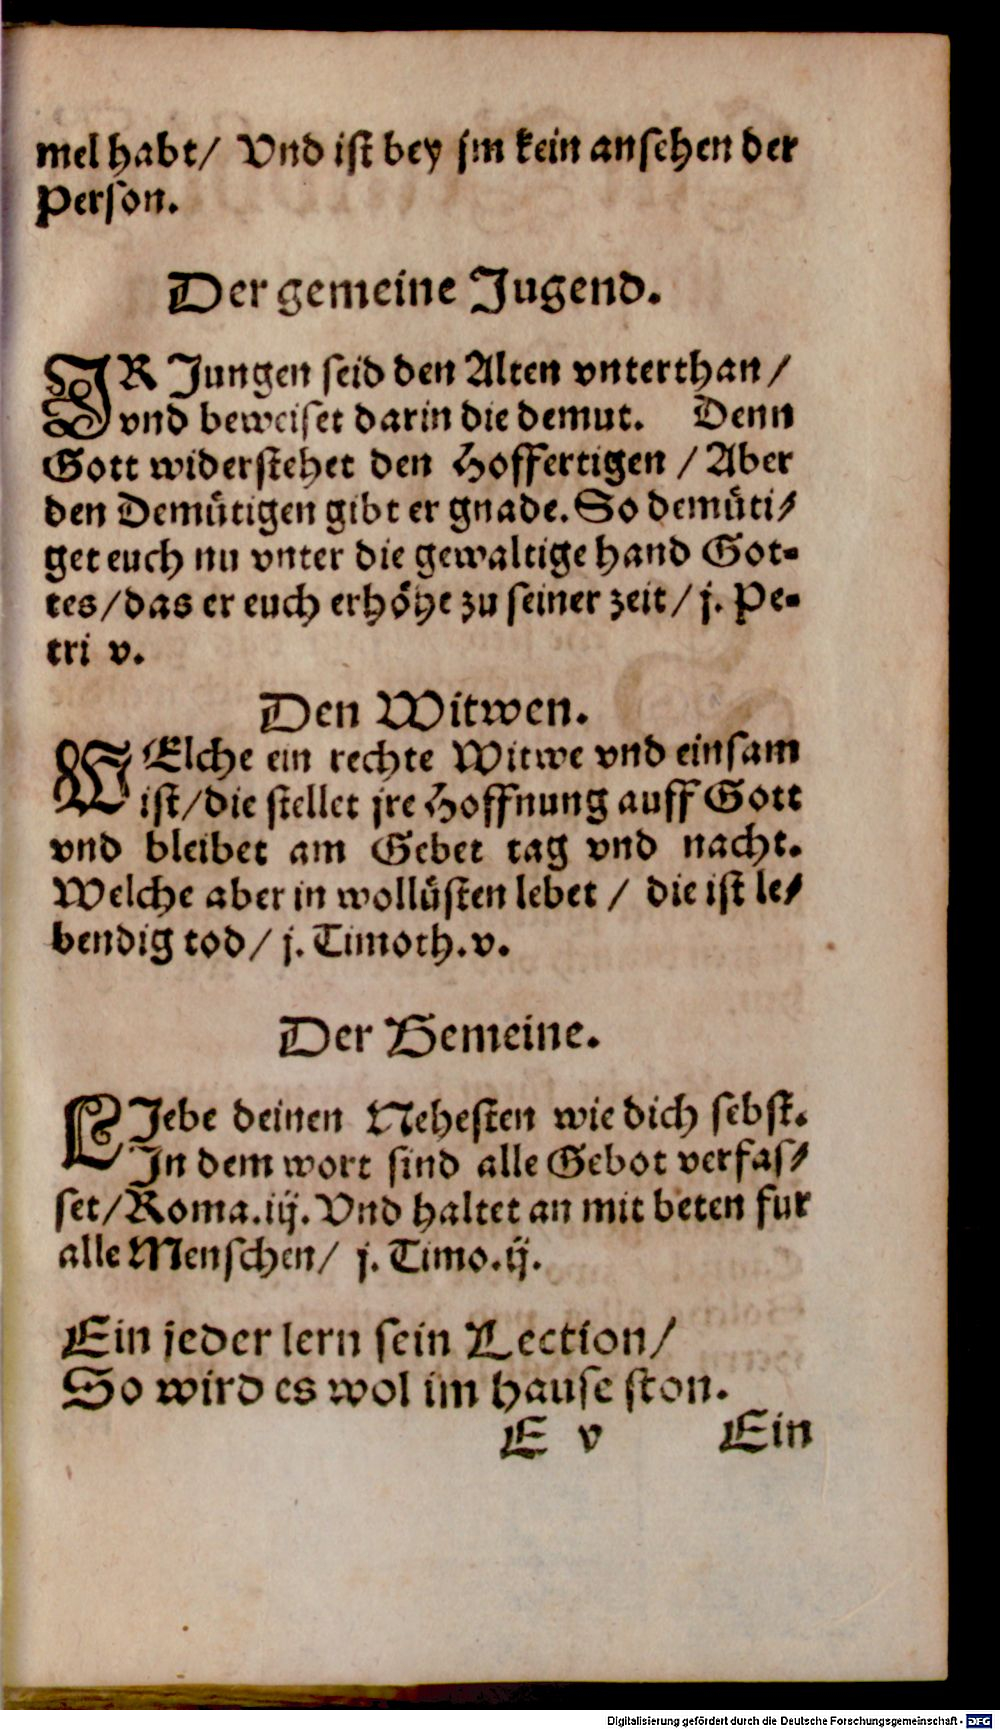 mel habt/ Vnd ist bey jm kein ansehen der
Person.
Der gemeine Jugend.
IR Jungen seid den Alten vnterthan/
vnd beweiset darin die demut. Denn
Gott widerstehet den Hoffertigen / Aber
den Demütigen gibt er gnade. So demüti/
get euch nu vnter die gewaltige hand Got-
tes/das er euch erhöhe zu seiner zeit/ j. Pe-
tri v.
Den Witwen.
WElche ein rechte Witwe vnd einsam
ist/die stellet jre Hoffnung auff Gott
vnd bleibet am Gebet tag vnd nacht.
Welche aber in wollüsten lebet / die ist le/
bendig tod/ j. Timoth. v.
Der Gemeine.
LJebe deinen Nehesten wie dich sebst.
In dem wort sind alle Gebot verfas/
set/Roma. iij. Vnd haltet an mit beten fur
alle Menschen/ j. Timo. ij.
Ein jeder lern sein Lection/
So wird es wol im hause ston.
E v Ein
Digitalisierung gefördert durch die Deutsche Forschungsgemeinschaft - DFG